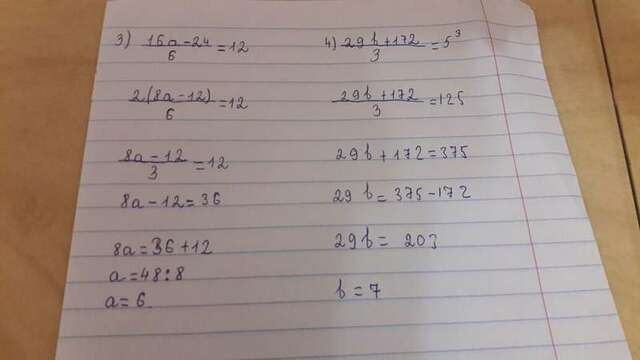 3) (16a-24)/6 = 12
2(8a-12)/6 = 12
(8a-12)/3 = 12
8a-12 = 36
8a = 36+12
a = 48:8
a = 6
4) (29b+172)/3 = 5³
(29b+172)/3 = 125
29b+172 = 375
29b = 375-172
29b = 203
b = 7